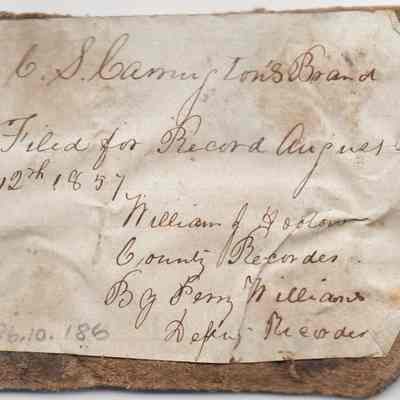 C. S. Carrington's Brand
Filed for Record August
12th 1857
William J
County Recorder
By Perry Williams
Deputy Recorder
86.10.186